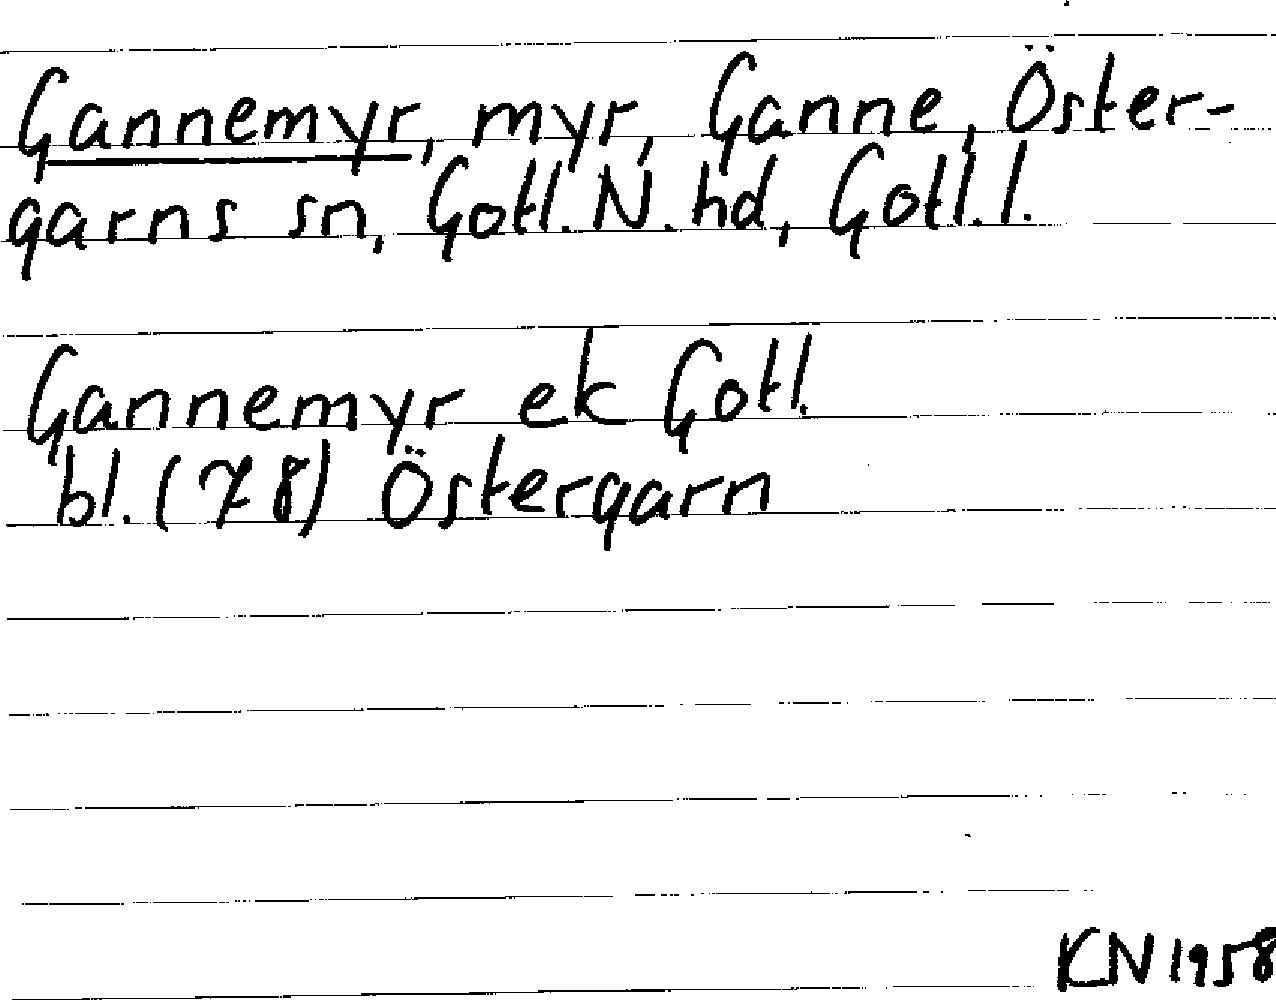 Gannemyr, myr, Ganne, Öster-
garns sn, Gotl. N. hd, Gotl. l.
Gannemyr ek Gotl.
bl. (78) Östergarn
KN 1958